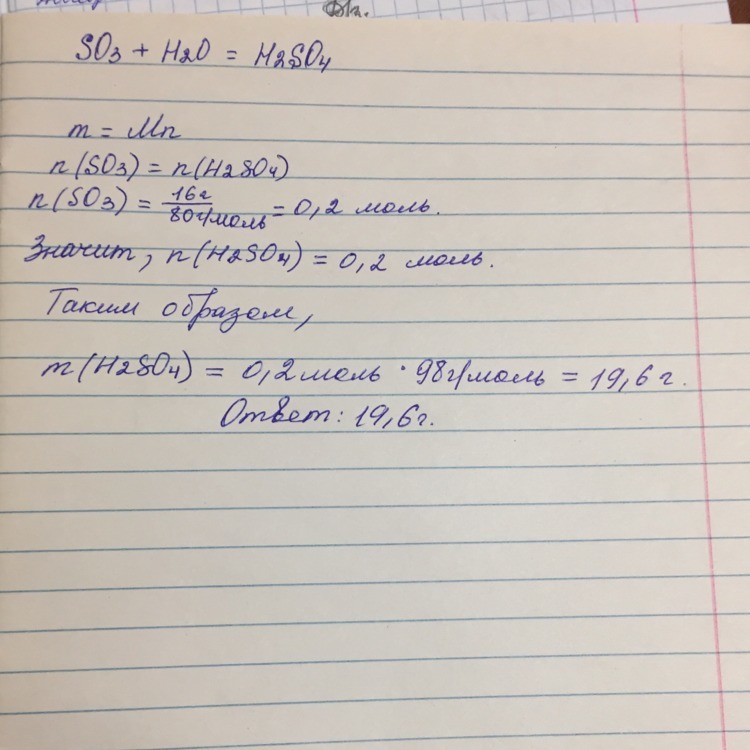 SO3 + H2O = H2SO4
m = Mn
n(SO3) = n(H2SO4)
n(SO3) = 16г / 80г/моль = 0,2 моль.
Значит, n(H2SO4) = 0,2 моль.
Таким образом,
m(H2SO4) = 0,2 моль · 98г/моль = 19,6 г.
Ответ: 19,6г.